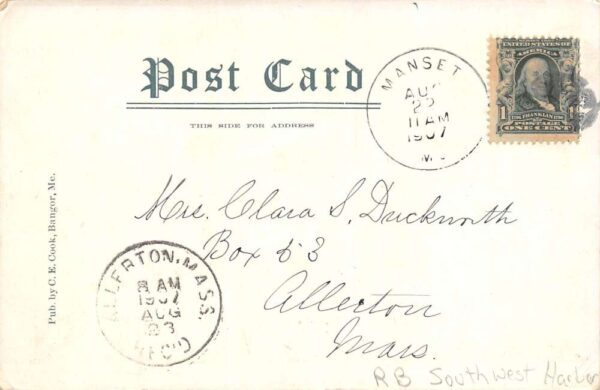 Post Card
THIS SIDE FOR ADDRESS
MANSET
AUG
22
11 AM
1907
ME.
UNITED STATES OF
AMERICA
1
1
FRANKLIN
POSTAGE
ONE CENT
Mrs. Clara S. Duckworth
Box 53
Allerton
Mass.
Pub. by C. E. Cook, Bangor, Me.
ALLERTON, MASS.
8 AM
1907
AUG
23
REC'D
RB Southwest Harbor